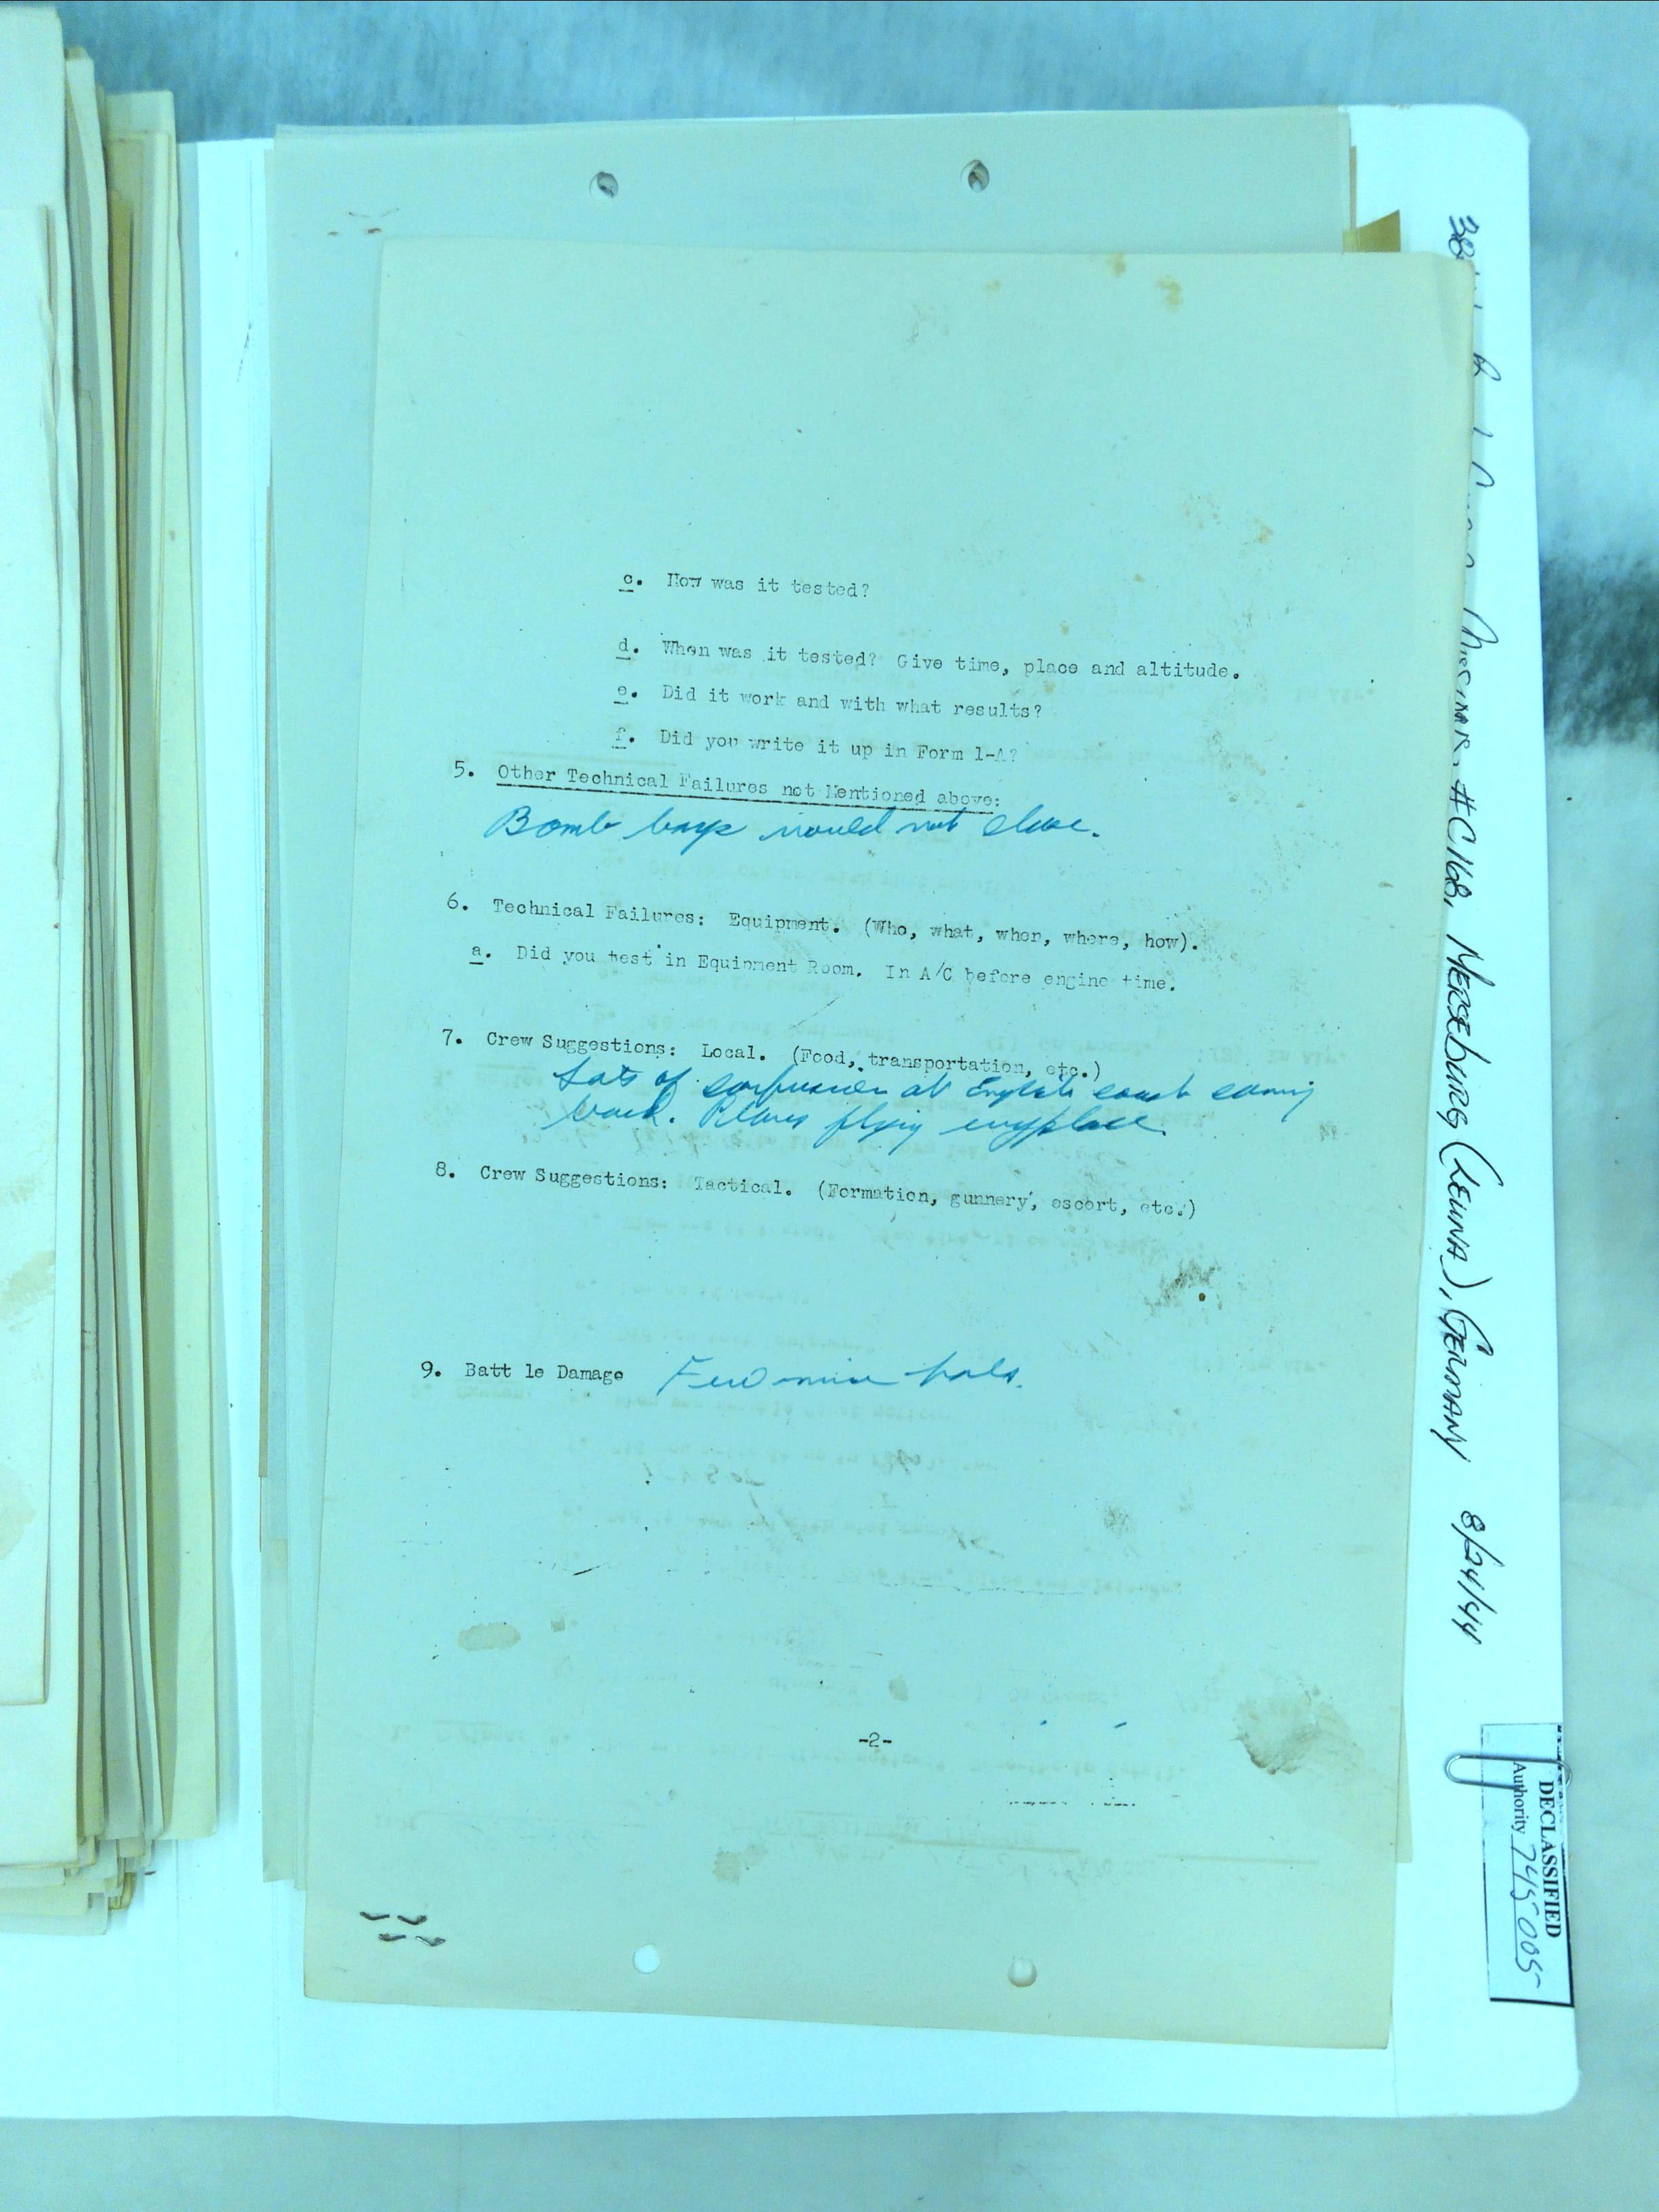 c. How was it tested?
d. When was it tested? Give time, place and altitude.
e. Did it work and with what results?
f. Did you write it up in Form 1-A?
5. Other Technical Failures not Mentioned above:
Bomb bays would not close.
6. Technical Failures: Equipment. (Who, what, when, where, how).
a. Did you test in Equipment Room. In A/C before engine time.
7. Crew Suggestions: Local. (Food, transportation, etc.)
Lots of confusion at English coast coming
back. Planes flying
8. Crew Suggestions: Tactical. (Formation, gunnery, escort, etc.)
9. Batt le Damage Few holes.
-2-
MISSION #C168, MERSEBURG (LEUNA), GERMANY 8/24/44
DECLASSIFIED
Authority 745005